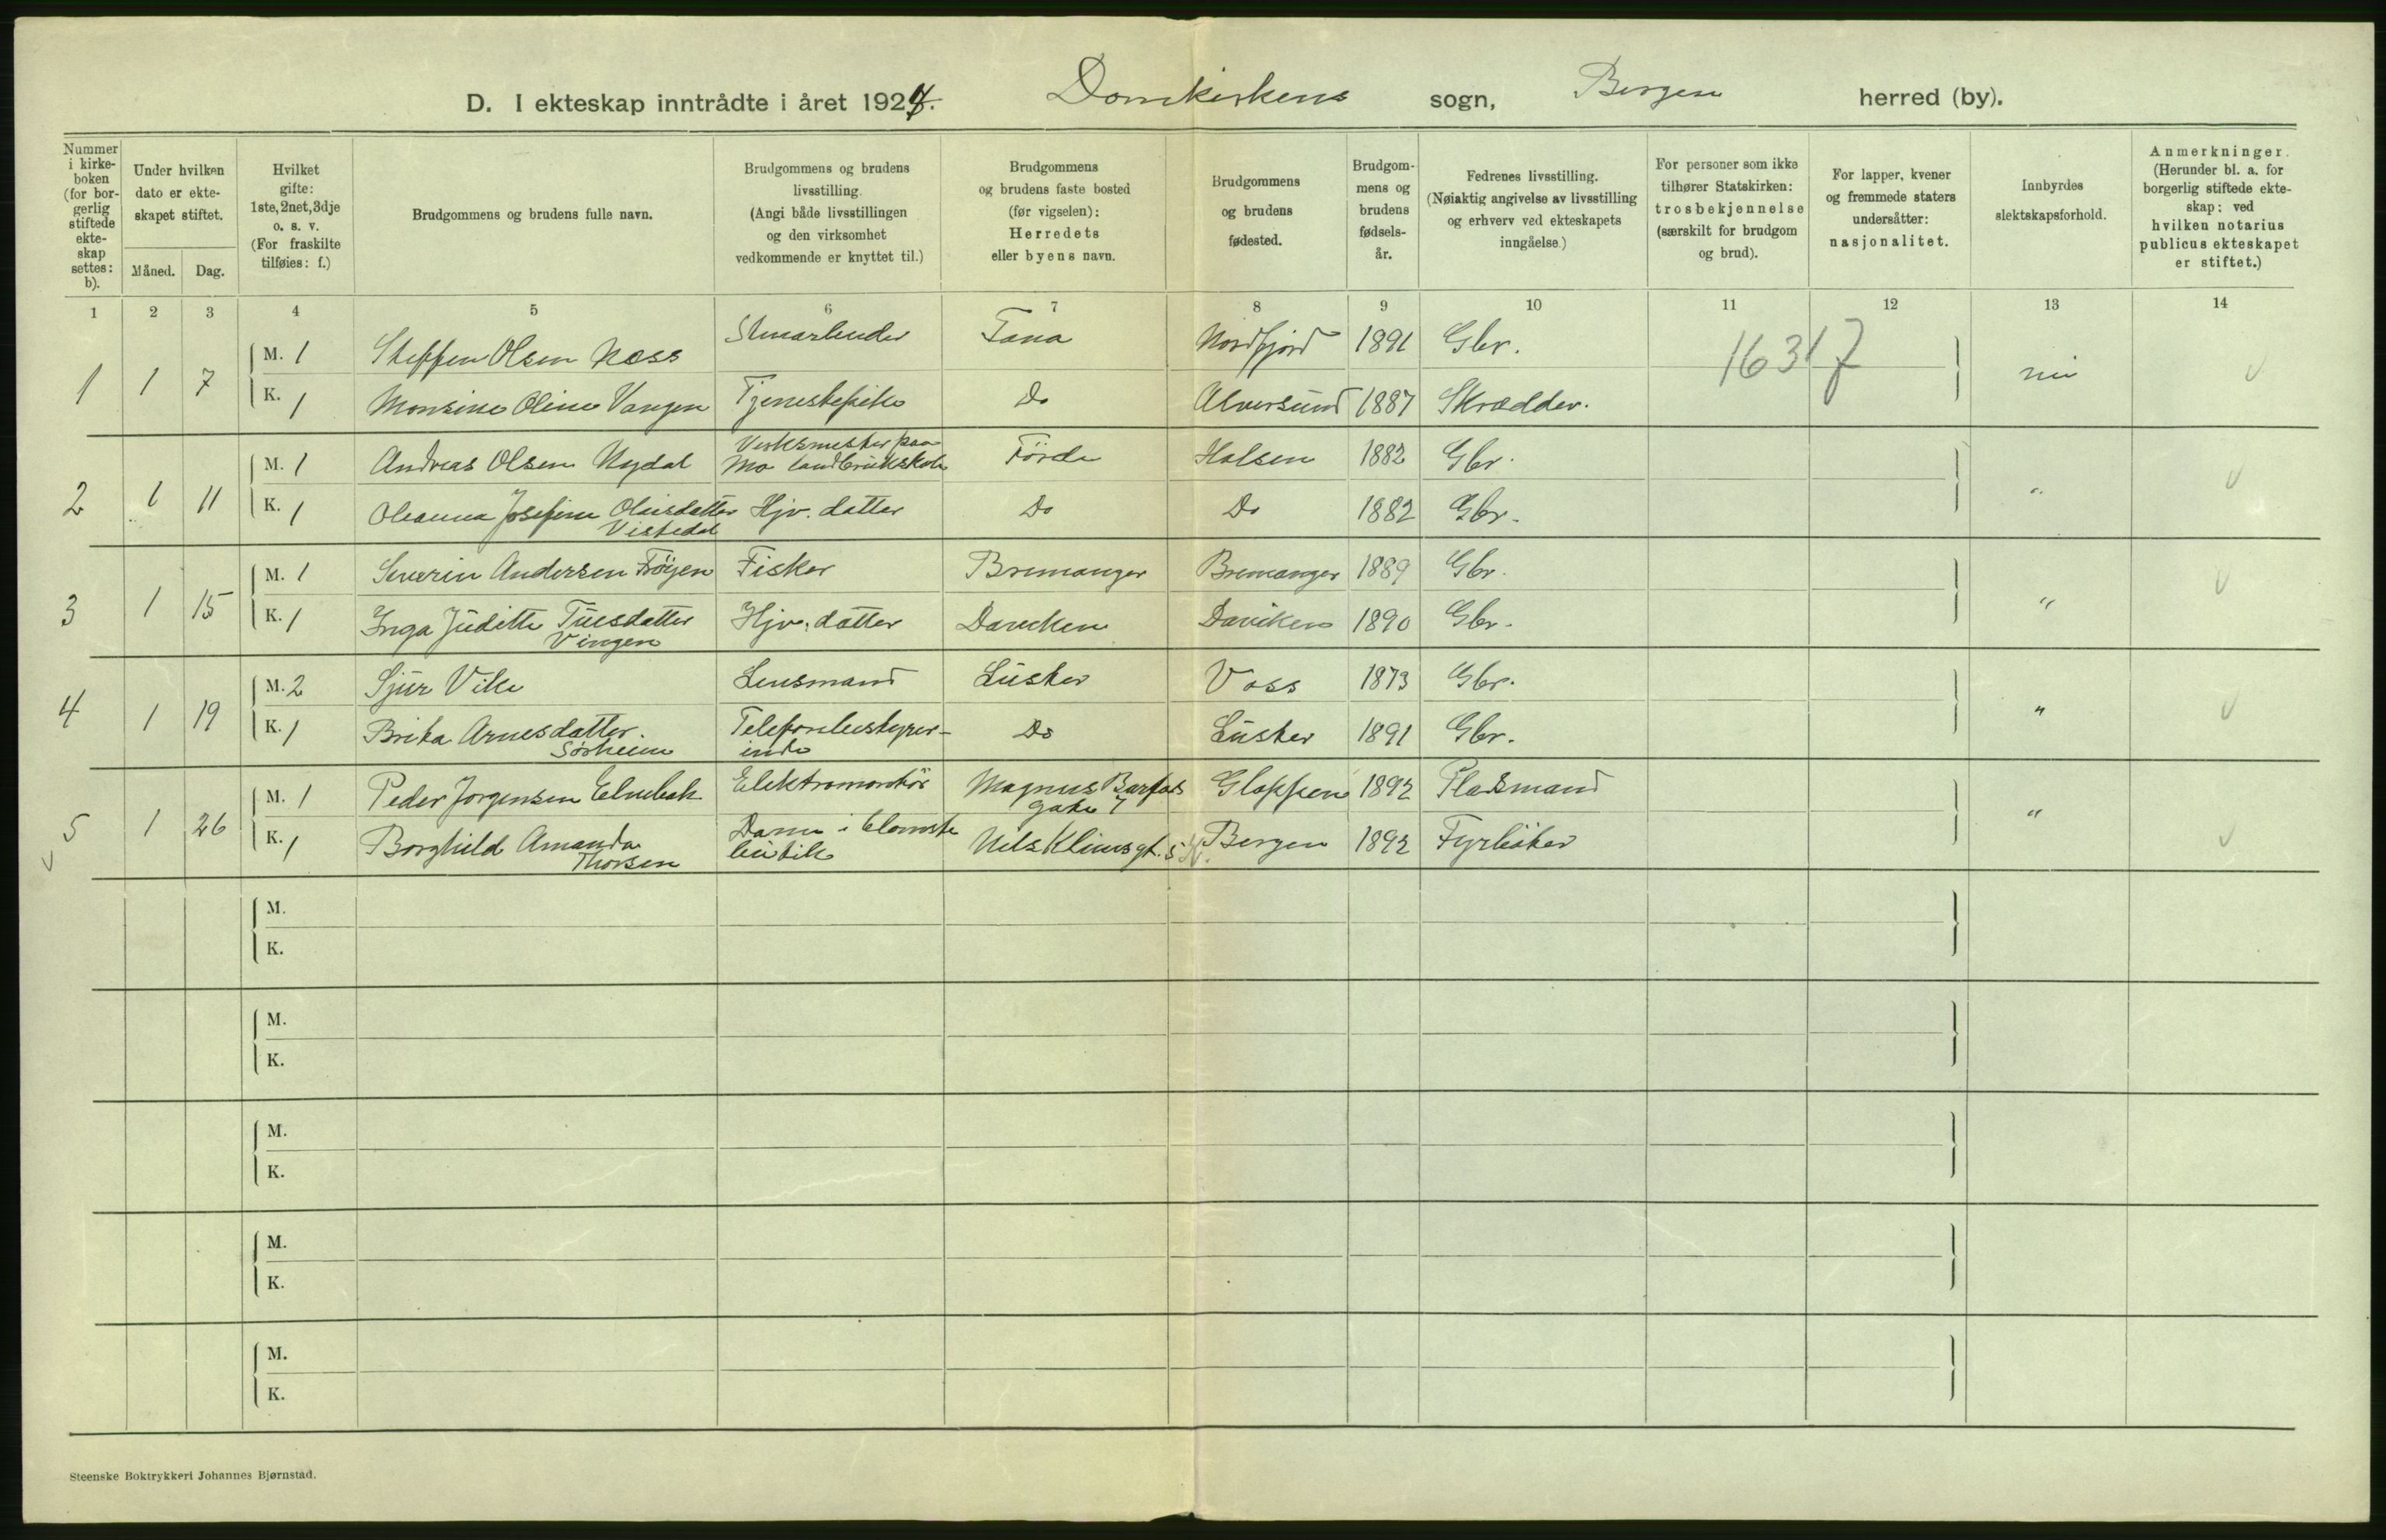 D. I ekteskap inntrådte i året 1924. Domkirkens sogn, Bergen herred (by).
Nummer i kirke- boken (for bor- gerlig stiftede ekte- skap settes: b).
Under hvilken dato er ekte- skapet stiftet.
Måned. Dag.
Hvilket gifte: 1ste, 2net, 3dje o. s. v. (For fraskilte tilføies: f.)
Brudgommens og brudens fulle navn.
Brudgommens og brudens livsstilling. (Angi både livsstillingen og den virksomhet vedkommende er knyttet til.)
Brudgommens og brudens faste bosted (før vigselen): Herredets eller byens navn.
Brudgommens og brudens fødested.
Brudgom- mens og brudens fødsels- år.
Fedrenes livsstilling. (Nøiaktig angivelse av livsstilling og erhverv ved ekteskapets inngåelse.)
For personer som ikke tilhører Statskirken: trosbekjennelse (særskilt for brudgom og brud).
For lapper, kvener og fremmede staters undersåtter: nasjonalitet.
Innbyrdes slektskapsforhold.
Anmerkninger. (Herunder bl. a. for borgerlig stiftede ekte- skap: ved hvilken notarius publicus ekteskapet er stiftet.)
1 2 3 4 5 6 7 8 9 10 11 12 13 14
1 1 7 M. 1 Steffen Olsen Næss Fana Nordfjord 1891 Gbr. 16317
K. 1 Monsine Oline Vangen Tjenestepike Do Alversund 1887 Skrædder.
2 1 11 M. 1 Andreas Olsen Nydal Verksmester paa Mo landbrukskole Førde Holsen 1882 Gbr. "
K. 1 Oleanna Josefine Olaisdatter Vistedal Hjv. datter Do Do 1882 Gbr.
3 1 15 M. 1 Severin Andersen Frøyen Fisker Bremanger Bremanger 1889 Gbr. "
K. 1 Inga Juditte Vingen Hjv. datter Daviken Daviken 1890 Gbr.
4 1 19 M. 2 Sjur Vike Lensmand Luster Voss 1873 Gbr. "
K. 1 Brita Arnesdatter Sørheim Telefonbestyrer- inde Do Luster 1891 Gbr.
5 1 26 M. 1 Peder Jørgensen Elvebak Elektromontør Magnus Barfots gate 7 Gloppen 1892 Pladsmand "
K. 1 Borghild Amanda Thorsen Dame i blomster butik Nels Klims gt. 5 Bergen 1892 Fyrbøter
M.
K.
M.
K.
M.
K.
M.
K.
M.
K.
Steenske Boktrykkeri Johannes Bjørnstad.